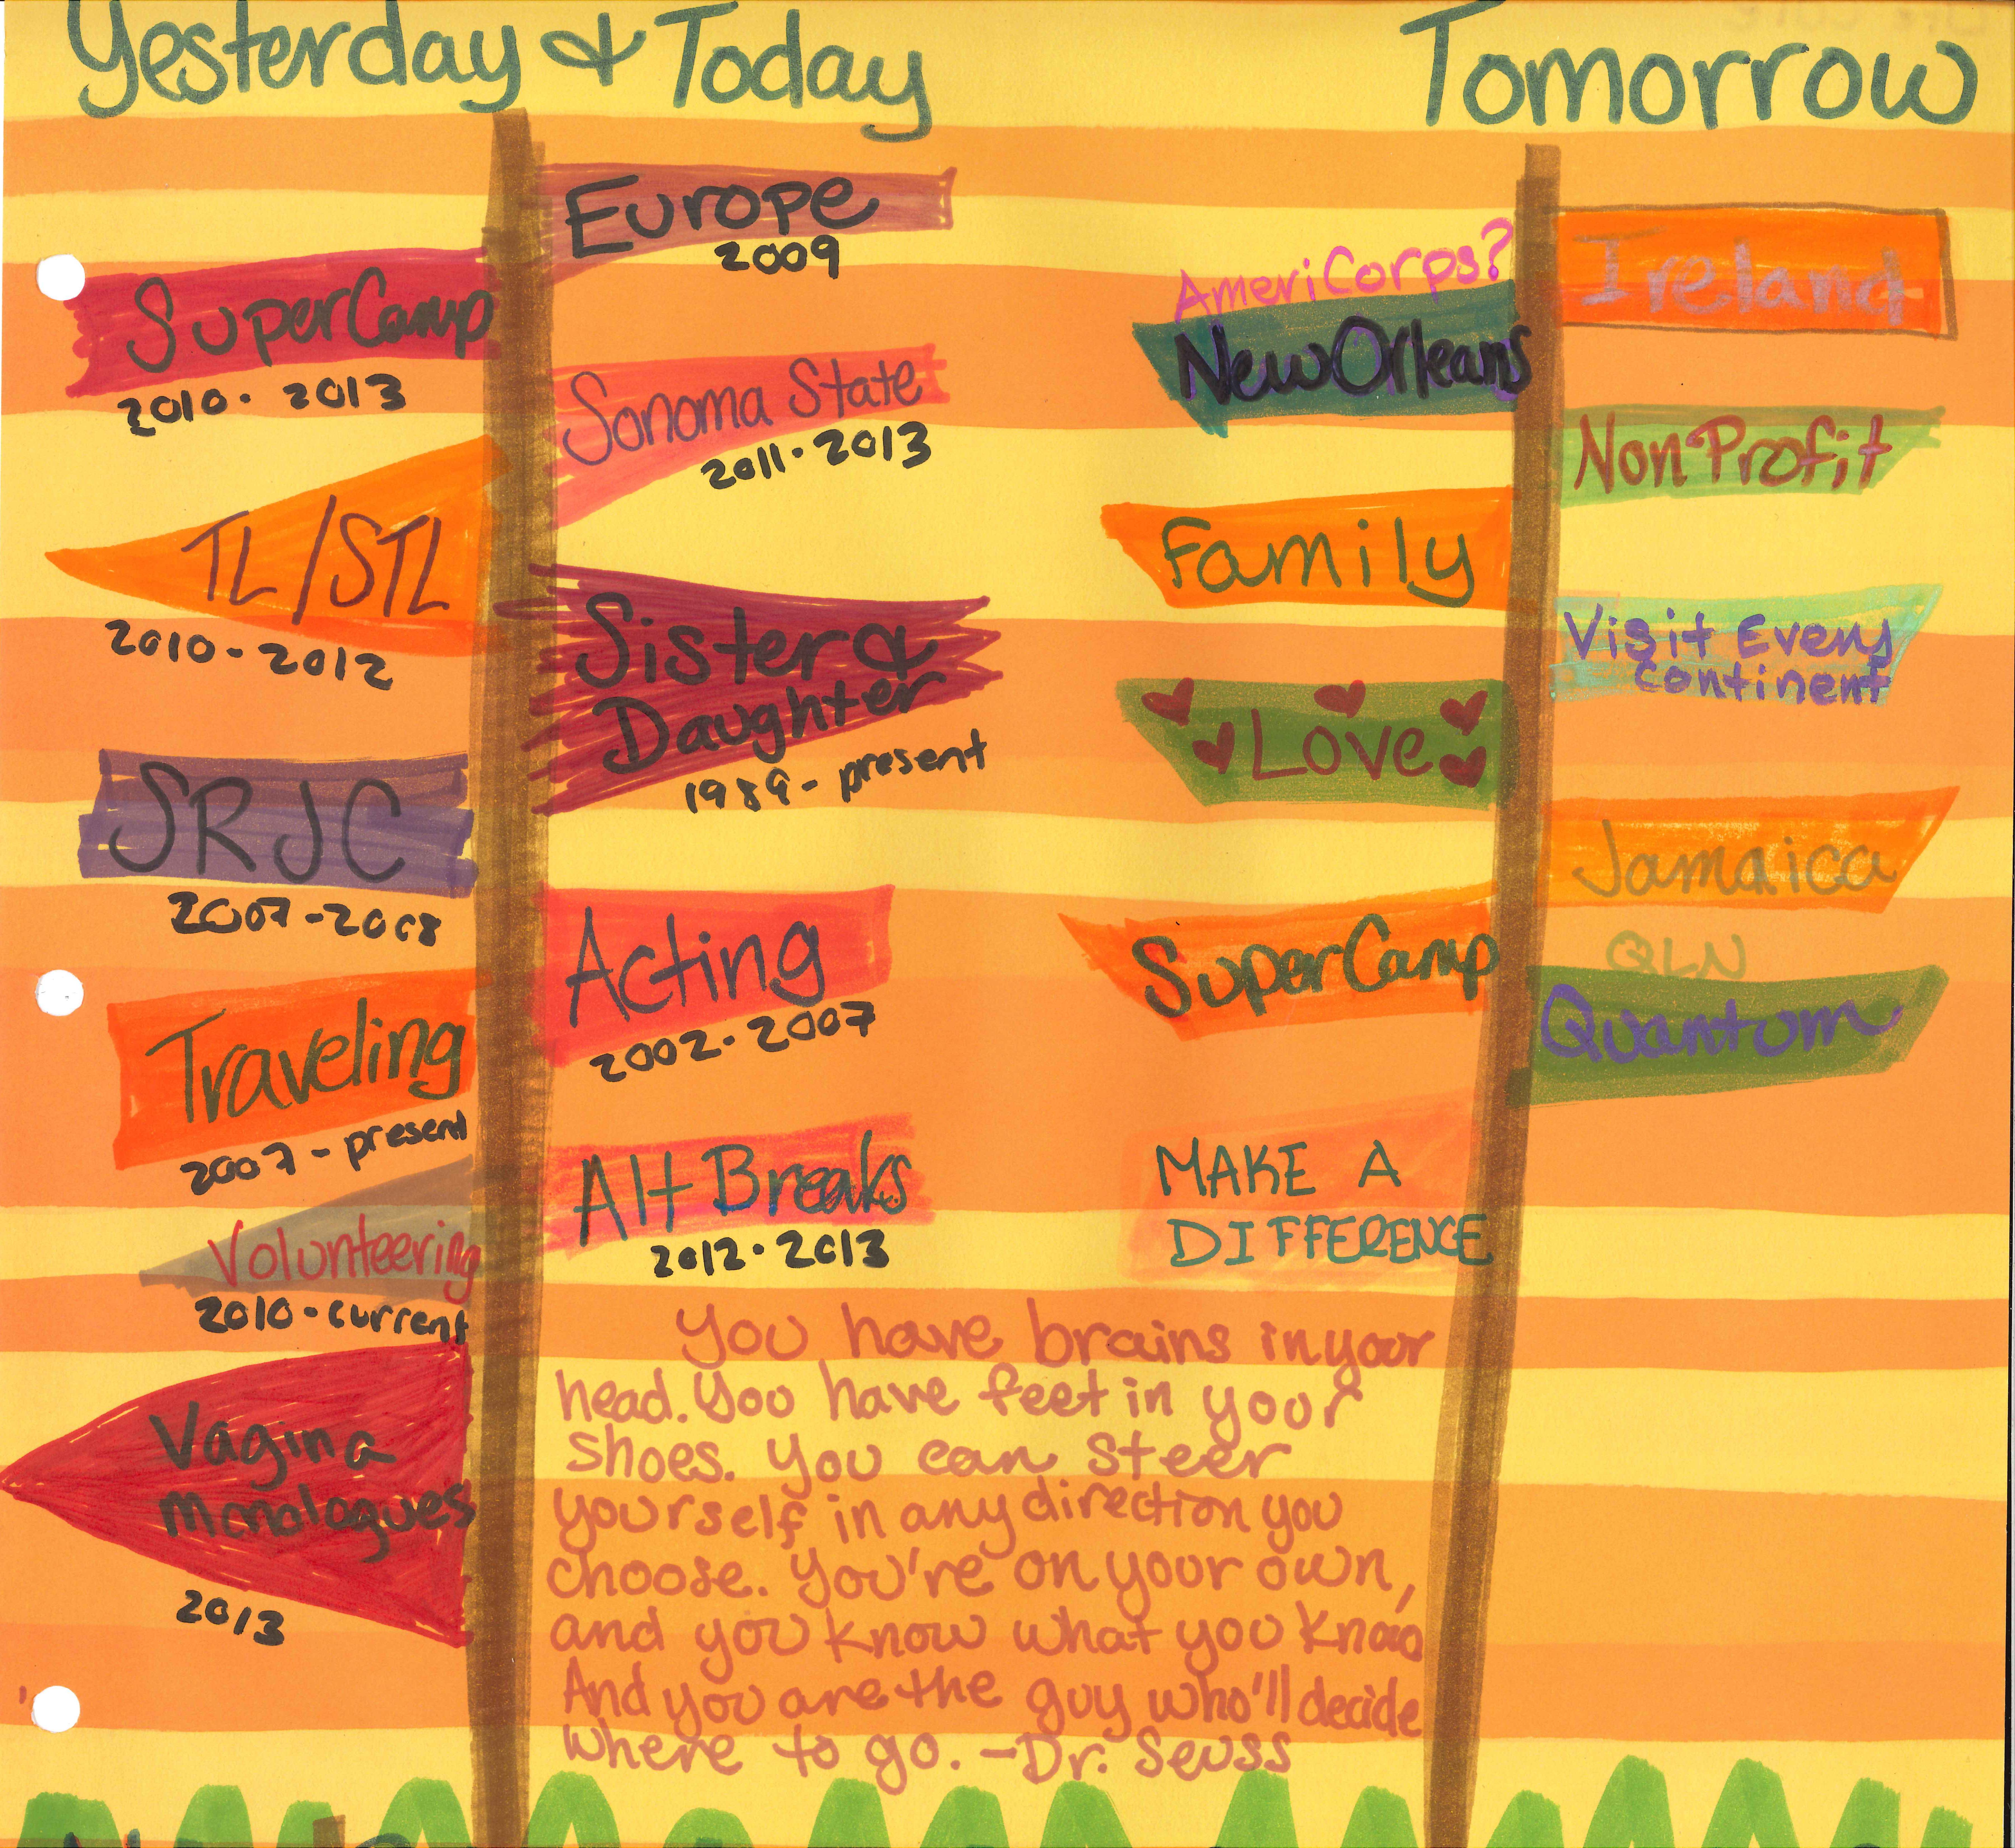 Yesterday & Today
Tomorrow
Europe
2009
SuperCamp
2010 · 2013
Sonoma State
2011 · 2013
TL/STL
2010 - 2012
Sister &
Daughter
1989 - present
SRJC
2007 - 2008
Acting
2002 · 2007
Traveling
2007 - present
Alt Breaks
2012 · 2013
Volunteering
2010 - current
Vagina
Monologues
2013
Ireland
AmeriCorps?
New Orleans
Non Profit
Family
Visit Every
Continent
Love
Jamaica
SuperCamp
QLN
Quantum
MAKE A
DIFFERENCE
You have brains in your
head. You have feet in your
shoes. You can steer
yourself in any direction you
choose. You're on your own,
and you know what you know
And you are the guy who'll decide
where to go. - Dr. Seuss